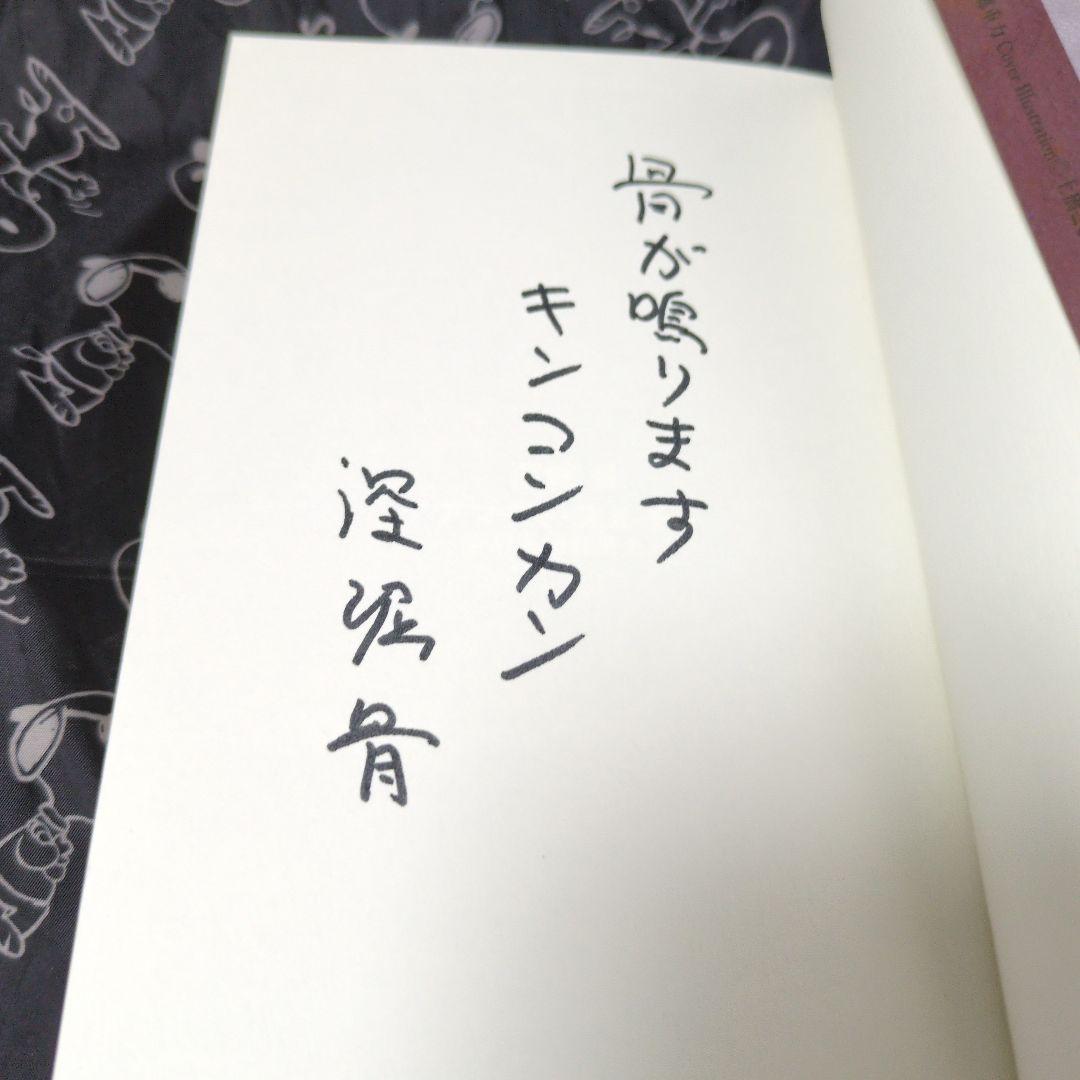 骨が鳴ります
キンコンカン
深堀骨
Cover Illustration